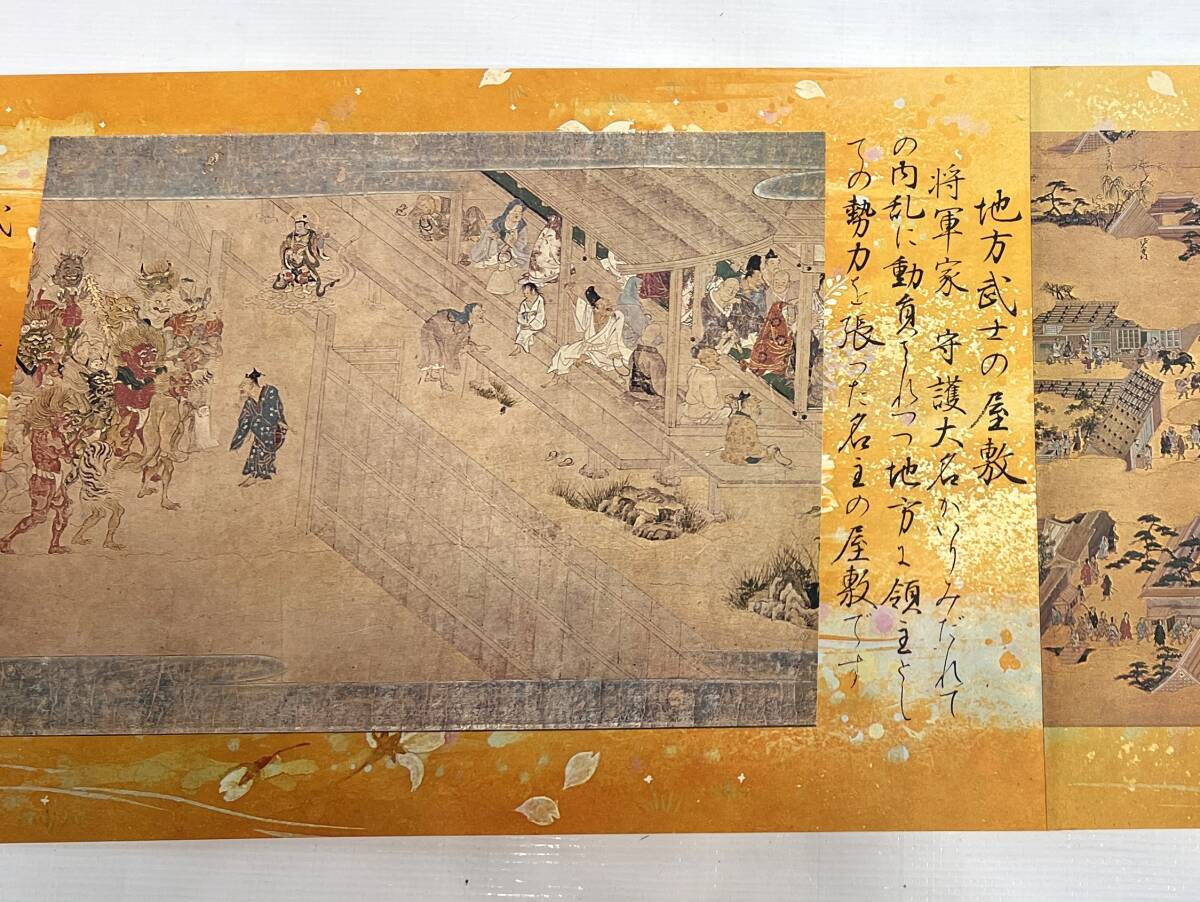 地方武士の屋敷
将軍家 守護大名がいりみだれて
の内乱に動員されつつ地方に領主とし
ての勢力を張った名主の屋敷です